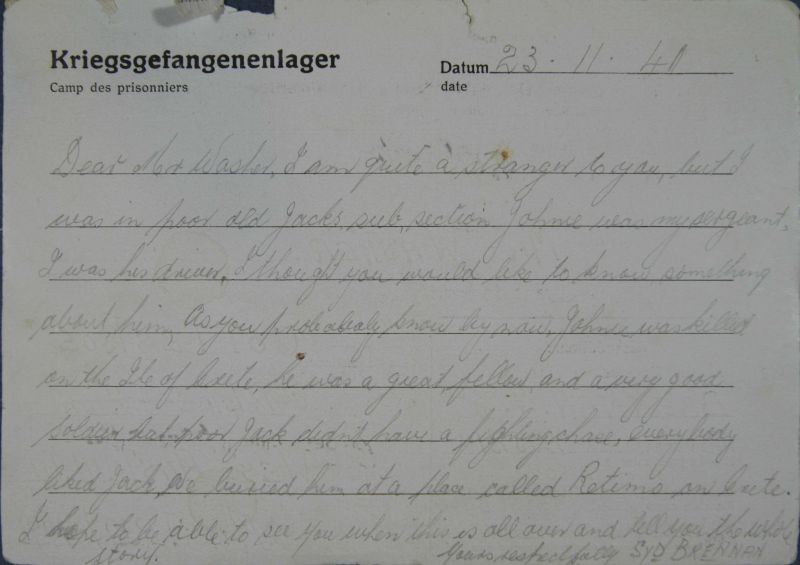 Kriegsgefangenenlager
Camp des prisonniers
Datum 23 . 11 . 41
date
Dear Mr Washer, I am quite a stranger to you, but I
was in poor old Jacks, sub, section, Johnie was my sergeant,
I was his driver, I thought you would like to know something
about, him, As you probabaly know by now, Johnie, was killed
on the Ile of Crete, he was a great, fellow, and a very good
soldier, but poor Jack didn't have a fighting chase, everybody
liked Jack, We buried him at a place called Retimo on Crete.
I hope to be able to see you when this is all over and tell you the whole
story.
Yours respectfully SYD BRENNAN